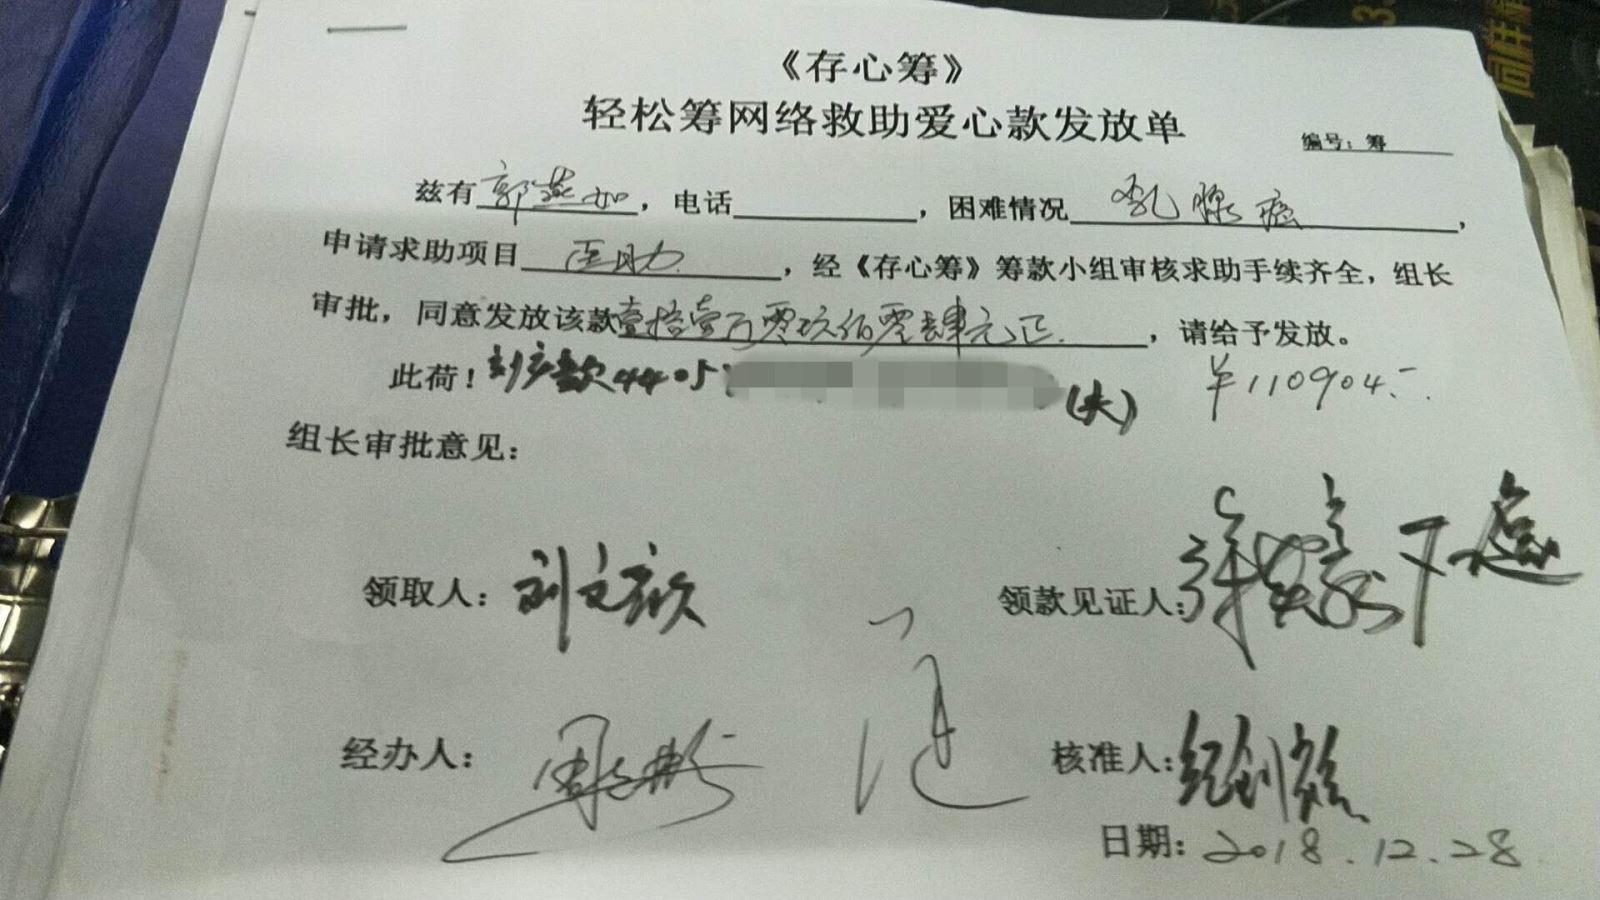 《存心筹》
轻松筹网络救助爱心款发放单
编号：筹
兹有郭燕如，电话，困难情况乳腺癌，
申请求助项目医助，经《存心筹》筹款小组审核求助手续齐全，组长
审批，同意发放该款壹拾壹万零玖佰零肆元正，请给予发放。
此荷！ 4405 (夫) ￥110904.-
组长审批意见：
领取人：刘文 领款见证人：
经办人： 核准人：
日期：2018.12.28